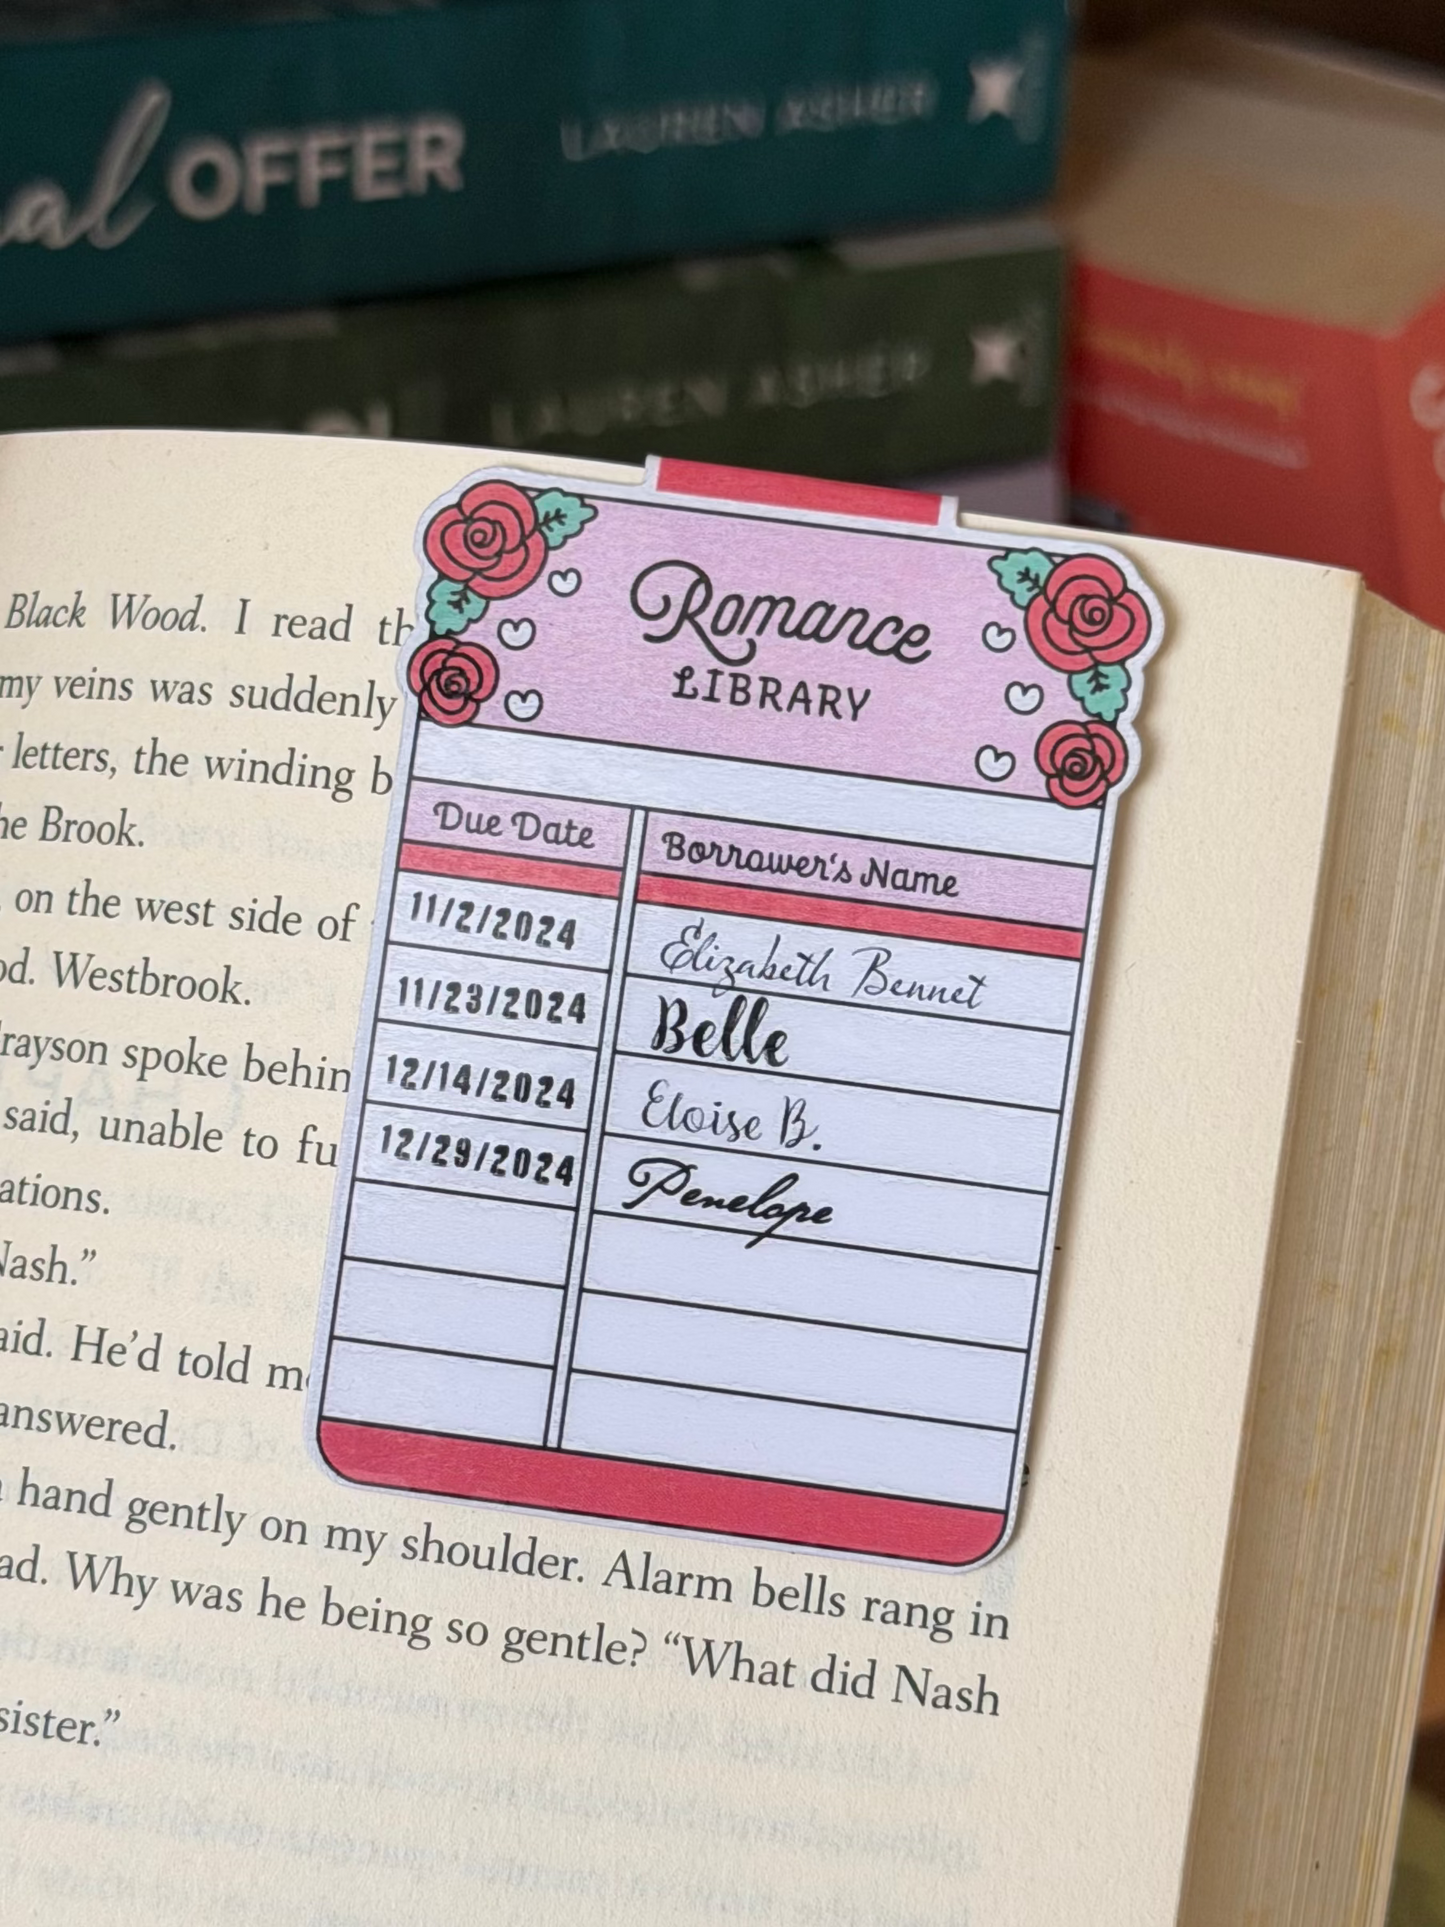 al OFFER LAUREN ASHER
LAUREN ASHER
Romance
LIBRARY
Due Date Borrower's Name
11/2/2024 Elizabeth Bennet
11/23/2024 Belle
12/14/2024 Eloise B.
12/29/2024 Penelope
Black Wood. I read th
my veins was suddenly
letters, the winding b
he Brook.
on the west side of
od. Westbrook.
rayson spoke behin
said, unable to fu
ations.
Nash.”
aid. He’d told m
answered.
hand gently on my shoulder. Alarm bells rang in
ad. Why was he being so gentle? “What did Nash
sister.”